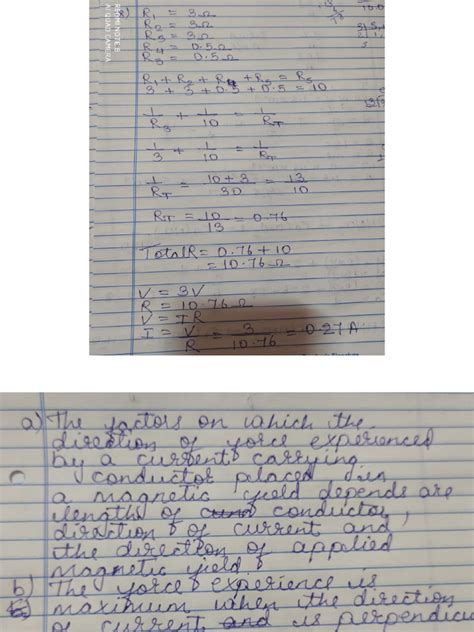 8) R1 = 3Ω
R2 = 3Ω
R3 = 3Ω
R4 = 0.5Ω
R5 = 0.5Ω
R1 + R2 + R4 + R5 = Rs
3 + 3 + 0.5 + 0.5 = 10
1/R3 + 1/10 = 1/RT
1/3 + 1/10 = 1/RT
1/RT = 10+3/30 = 13/10
RT = 10/13 = 0.76
Total R = 0.76 + 10
= 10.76 Ω
V = 3V
R = 10.76 Ω
V = IR
I = V/R = 3/10.76 = 0.27 A
a) The factors on which the
direction of force experienced
by a current carrying
conductor placed in
a magnetic field depends are
length of conductor,
direction of current and
the direction of applied
magnetic field
b) The force experience is
maximum when the direction
of current and is perpendicu